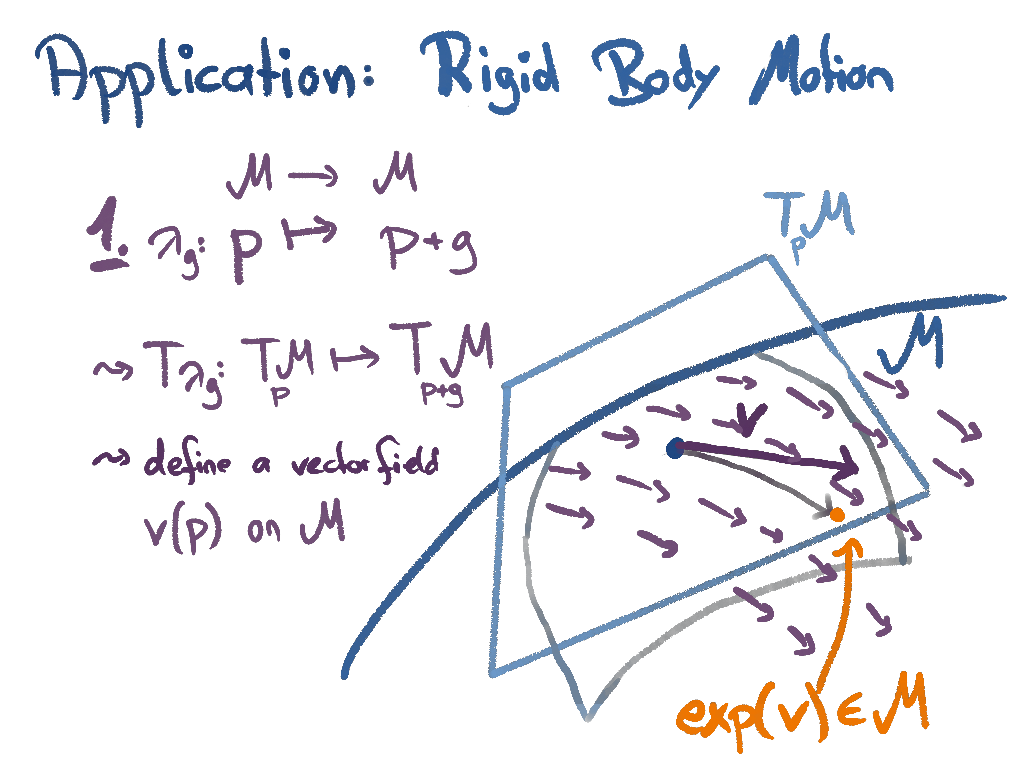 Application: Rigid Body Motion
M → M
1. λg: p ↦ p+g
⇝ Tλg: TpM ↦ Tp+gM
⇝ define a vectorfield
v(p) on M
TpM
M
v
exp(v) ∈ M